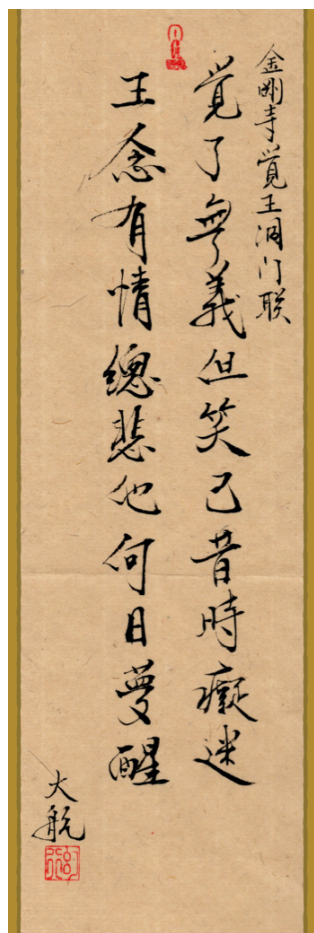 金刚寺觉王洞门联
覺了無義但笑己昔時癡迷
王念有情總悲他何日夢醒
大航